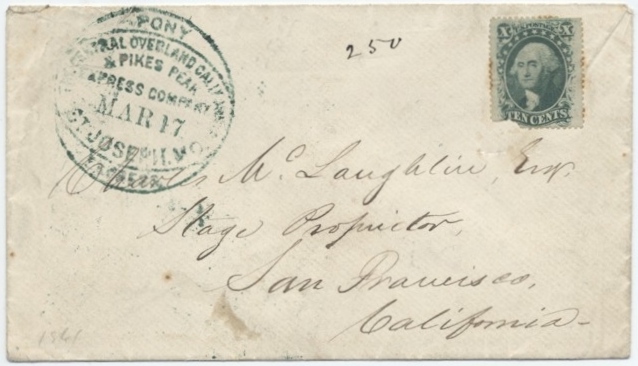 PONY
CENTRAL OVERLAND CALIFORNIA
& PIKES PEAK
EXPRESS COMPANY
MAR 17
ST JOSEPH.MO
250
X X
TEN CENTS
Charles Mc Laughlin, Esq.
Stage Proprietor,
San Francisco,
California-
1861